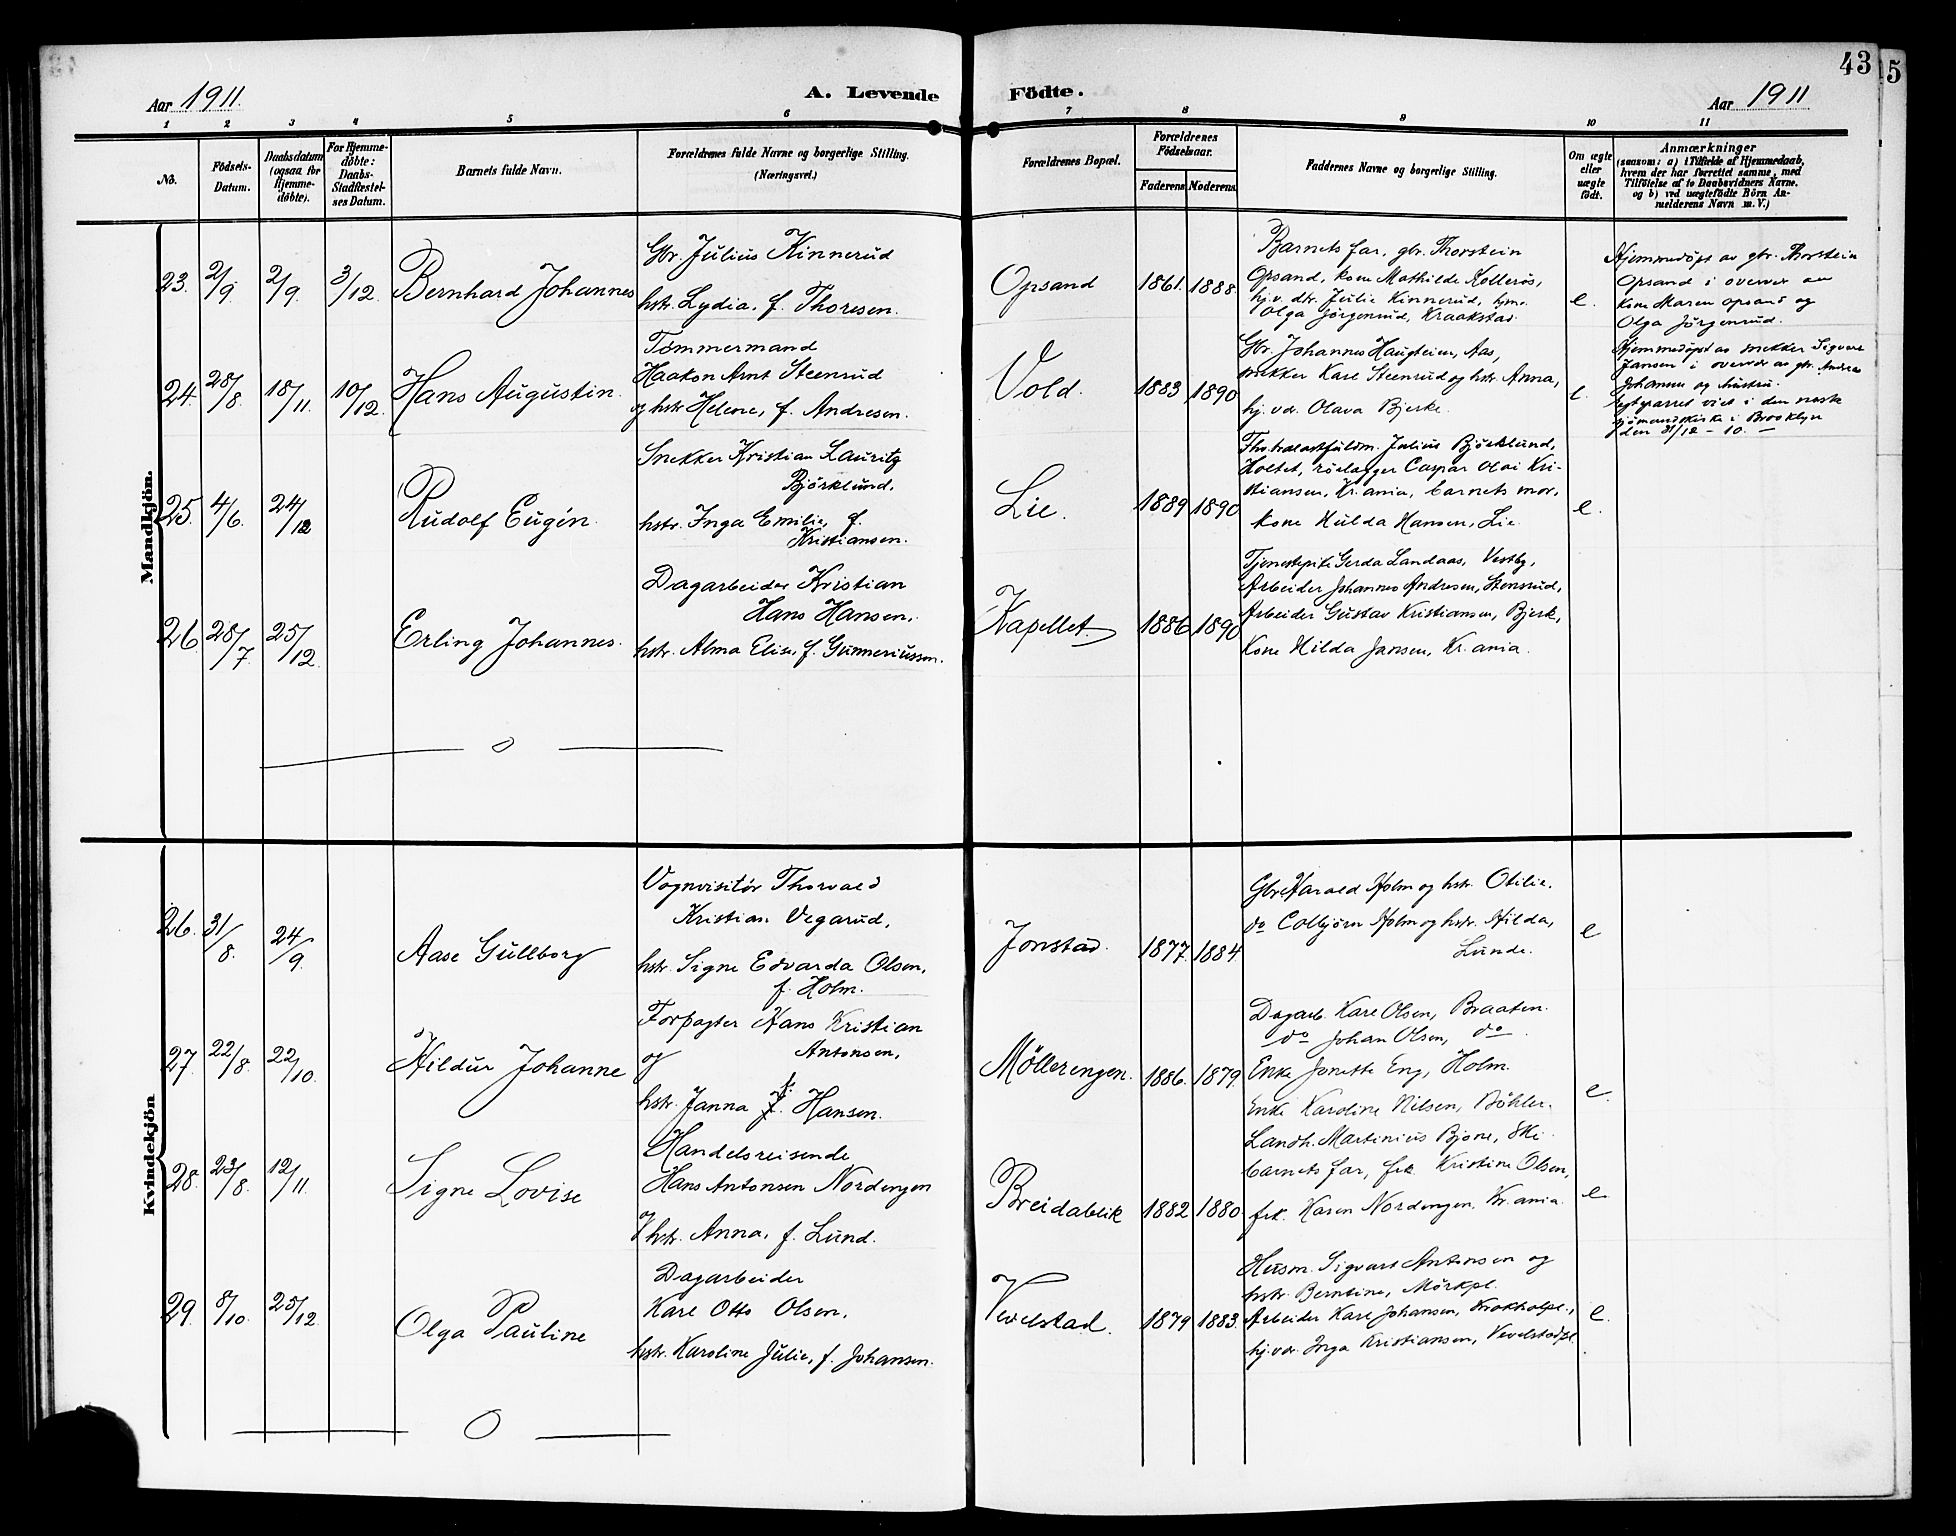 43
5
Aar 1911.
A. Levende Födte.
Aar 1911
1 2 3 4 5 6 7 8 9 10 11
No.
Födsels-
Datum.
Daabsdatum
(ogsaa for
Hjemme-
døbte).
For Hjemme-
døbte:
Daabs-
Stadfæstel-
ses Datum.
Barnets fulde Navn.
Forældrenes fulde Navne og borgerlige Stilling.
(Næringsvei.)
Forældrenes Bopæl.
Forældrenes
Födselsaar.
Faderens Moderens.
Faddernes Navne og borgerlige Stilling.
Om ægte
eller
uægte
födt.
Anmærkninger
(saasom: a) i Tilfælde af Hjemmedaab,
hvem der har forrettet samme, med
Tilföielse af to Daabsvidners Navne.
og b) ved uægtefödte Börn An-
melderens Navn m. V.)
Mandkjön.
23. 2/9 2/9 3/12 Bernhard Johannes
Gbr. Julius Kinnerud
hstr. Lydia, f. Thoresen.
Opsand 1861. 1888.
Barnets far, gbr. Thorstein
Opsand, kone Mathilde Kollerös,
hj.v. dtr. Julie Kinnerud, hjm.
Olga Jörgenrud, Kraakstad.
e.
Hjemmedöpt av gbr. Thorstein
Opsand i overvær av
kone Maren Opsand og
Olga Jörgenrud.
24. 28/8 18/11. 10/12. Hans Augustin.
Tömmermand
Haakon Arnt Steenrud
og hstr. Helene, f. Andresen.
Vold. 1883 1890
Gbr. Johannes Haugteien, Aas,
snekker Karl Steenrud og hstr. Anna,
hj. v dr. Olava Bjerke.
e.
Hjemmedöpt av snekker Sigvart
Jansen i overvær av gbr. Andreas
Johansen og hustru.
Egteparret viet i den norske
sjömandskirke i Brooklyn
den 31/12 - 10. —
25. 4/6. 24/12 Rudolf Eugén.
Snekker Kristian Lauritz
Björklund,
hstr. Inga Emilie, f.
Kristiansen.
Lie. 1889 1890
Julius Björklund,
Holtet, rörlægger Caspar Olai Kri-
stiansen, Kr.ania, barnets mor,
kone Hulda Hansen, Lie.
e.
26 28/7 25/12. Erling Johannes.
Dagarbeider Kristian
Hans Hansen,
hstr. Alma Elise, f. Gunneriussen.
Kapellet. 1886 1890
Tjenestepike Gerda Landaas, Vestby,
Arbeider Johannes Andresen, Stensrud,
Arbeider Gustav Kristiansen, Bjerk,
Kone Hilda Jansen, Kr.ania.
Kvindekjön
26. 31/8. 24/9. Aase Gullborg
Vognvisitör Thorvald
Kristian Vegarud,
hstr. Signe Edvarda Olsen,
f. Holm.
Jonstad. 1877. 1884
Gbr Harald Holm og hstr. Otilie.
do Colbjörn Holm og hstr. Hilda,
Lunde.
e
27. 22/8. 22/10. Hildur Johanne
Forpagter Hans Kristian
og Antonsen,
hstr. Janna f. Hansen.
Möllerengen. 1886. 1879.
Dagarb. Karl Olsen, Braaten.
do Johan Olsen, do
Enke Jonette Eng, Holm.
Enke Karoline Nilsen, Böhler.
e.
28. 23/8. 12/11. Signe Lovise
Handelsreisende
Hans Antonsen Nordengen
& hstr. Anna, f. Lund.
Breidablik 1882 1880.
Landh. Martinius Bjone, Ski.
barnets far, frk. Kristine Olsen,
frk. Karen Nordengen, Kr.ania.
e
29. 8/10. 25/12. Olga Pauline
Dagarbeider
Karl Otto Olsen,
hstr. Karoline Julie, f. Johansen.
Vevelstad. 1879 1883.
Husm. Sigvart Antonsen og
hstr. Berntine, Mörkpl.
Arbeider Karl Johansen, Krokholpl.,
hj.v dr. Inga Kristiansen, Vevelstadpl.
e.